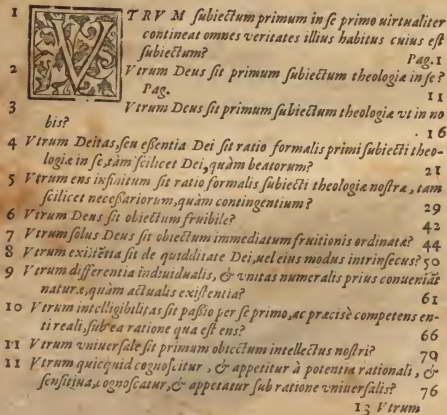 1 VTRVM subiectum primum in se primo uirtualiter
contineat omnes veritates illius habitus cuius est
subiectum? Pag.1
2 Vtrum Deus sit primum subiectum theologiæ in se?
Pag. 11
3 Vtrum Deus sit primum subiectum theologiæ vt in no
bis? 16
4 Vtrum Deitas, seu essentia Dei sit ratio formalis primi subiecti theo-
logiæ in se, tàm scilicet Dei, quàm beatorum? 21
5 Vtrum ens infinitum sit ratio formalis subiecti theologiæ nostræ, tam
scilicet necessariorum, quàm contingentium? 29
6 Vtrum Deus sit obiectum fruibile? 42
7 Vtrum solus Deus sit obiectum immediatum fruitionis ordinatæ? 44
8 Vtrum existētia sit de quidditate Dei, uel eius modus intrinsecus? 50
9 Vtrum differentia indiuidualis, & vnitas numeralis prius conueniāt
naturæ, quàm actualis existentia? 61
10 Vtrum intelligibilitas sit passio per se primo, ac præcisè competens en-
ti reali, sub ea ratione qua est ens? 66
11 Vtrum vniuersale sit primum obiectum intellectus nostri? 79
11 Vtrum quicquid cognoscitur, & appetitur à potentia rationali, &
sensitiua, cognoscatur, & appetatur sub ratione vniuersalis? 76
13 Vtrum